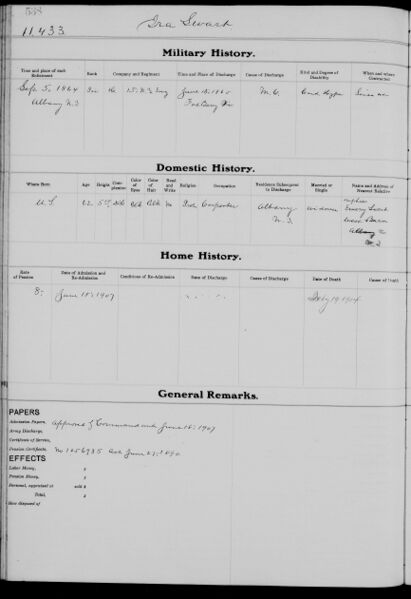 11,433
Ira Swart
Military History.
Time and place of each Enlistment
Rank
Company and Regiment
Time and Place of Discharge
Cause of Discharge
Kind and Degree of Disability
When and where Contracted
Sept 5, 1864
Albany N.Y.
June 15, 1865
M.O.
Domestic History.
Where Born
Age
Height
Complexion
Color of Eyes
Color of Hair
Read and Write
Religion
Occupation
Residence Subsequent to Discharge
Married or Single
Name and Address of Nearest Relative
U.S.
Carpenter
Albany
N.Y.
widower
nephew
Albany
N.Y.
Home History.
Rate of Pension
Date of Admission and Re-Admission
Conditions of Re-Admission
Date of Discharge
Cause of Discharge
Date of Death
Cause of Death
8-
June 15, 1907
General Remarks.
PAPERS
Admission Papers, Approval of Commandant June 15, 1907
Army Discharge,
Certificate of Service,
Pension Certificate, No 1056935 Act June 27, 1890
EFFECTS
Labor Money, $
Pension Money, $
Personal, appraised at sold $
Total, $
How disposed of